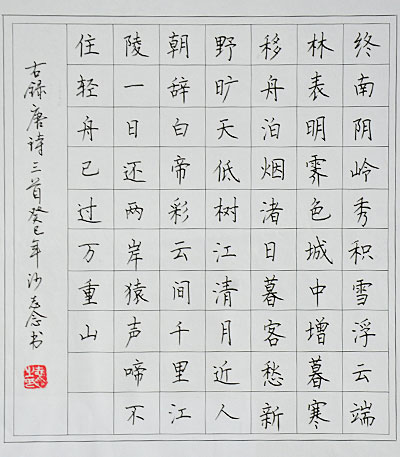 终南阴岭秀积雪浮云端
林表明霁色城中增暮寒
移舟泊烟渚日暮客愁新
野旷天低树江清月近人
朝辞白帝彩云间千里江
陵一日还两岸猿声啼不
住轻舟已过万重山
右錄唐诗三首癸巳年沙志念书